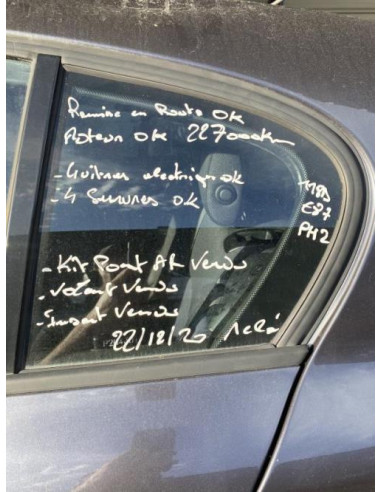 Remise en Route OK
Moteur OK 227000km
- 4 vitres electriques OK
- 4 Serrures OK
118D
E87
PH2
- Kit Pont AR Vendu
- Volant Vendu
- Vendu
22/12/20